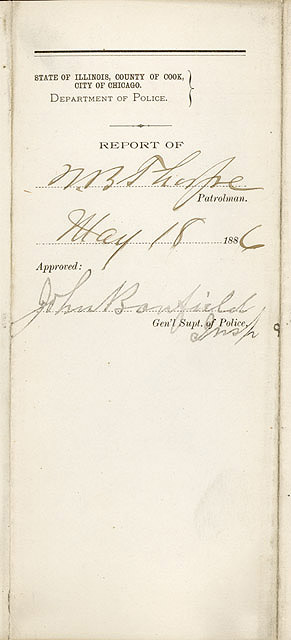 STATE OF ILLINOIS, COUNTY OF COOK,
CITY OF CHICAGO.
DEPARTMENT OF POLICE.
REPORT OF
N. B. Thorpe
Patrolman.
May 18 1886
Approved:
John Bonfield
Gen'l Supt. of Police.
Insp